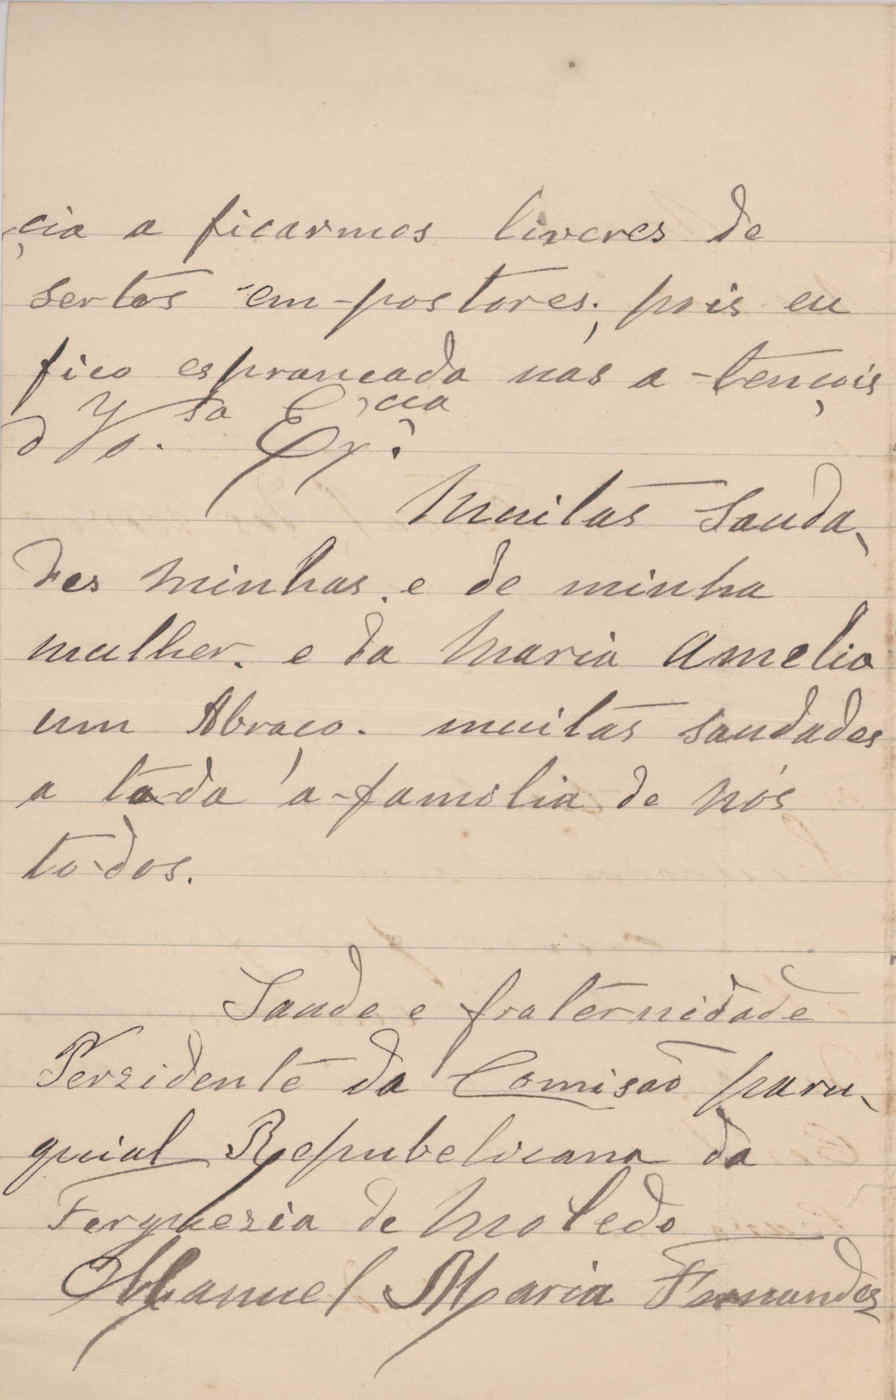 çia a ficarmos liveres de
sertos em-postores; pois eu
fico esprancada nas a-tençois
d V. sa Ex.cia
Muitas Sauda,
des minhas. e de minha
mulher. e da Maria Amelia
um Abraço. muitas saudades
a toda a-familia de nós
to-dos.
Saude e fraternidade
Perzidente da Comisão paru,
quial Republicana da
Ferguezia de Moledo
Manuel Maria Fernandes